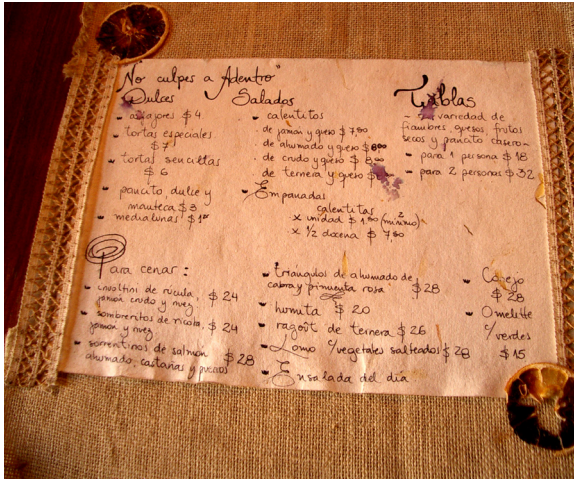 "No culpes a Adentro"
Dulces
- alfajores $4
- tortas especiales
$7
- tortas sencillas
$6
- pancito, dulce y
manteca $3
- medialunas $1
Salados
- calentitos
. de jamón y queso $7,00
. de ahumado y queso $8,00
. de crudo y queso $8,00
. de ternera y queso $
- Empanadas
calentitas
x unidad $1,80 (mínimo 2)
x 1/2 docena $7,80
Tablas
- variedad de
fiambres, quesos, frutos
secos y pancito casero
- para 1 persona $18
- para 2 personas $32
Para cenar:
- involtini de rúcula,
jamón crudo y nuez $24
- sombreritos de ricota,
jamon y nuez $24
- sorrentinos de salmon
ahumado, castañas y puerros $28
- triángulos de ahumado de
cabra y pimienta rosa $28
- humita $20
- ragoût de ternera $26
- Lomo c/vegetales salteados $28
- Ensalada del día
- Conejo
$28
- Omelette
c/verdes
$15